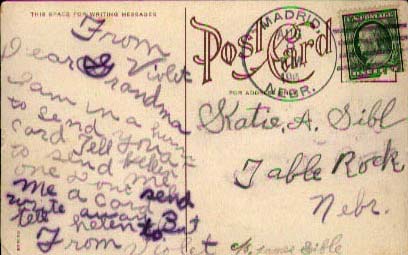 THIS SPACE FOR WRITING MESSAGES
From
Violet
Dear Grandma
I am in a hurry
to send you a
card Tell Helen
to send me
one or ont send
Me a card
write away But
tell helen to
From Violet
Post Card
MADRID,
NEBR.
Katie. A. Sibl
Table Rock
Nebr.
c/o James Sible